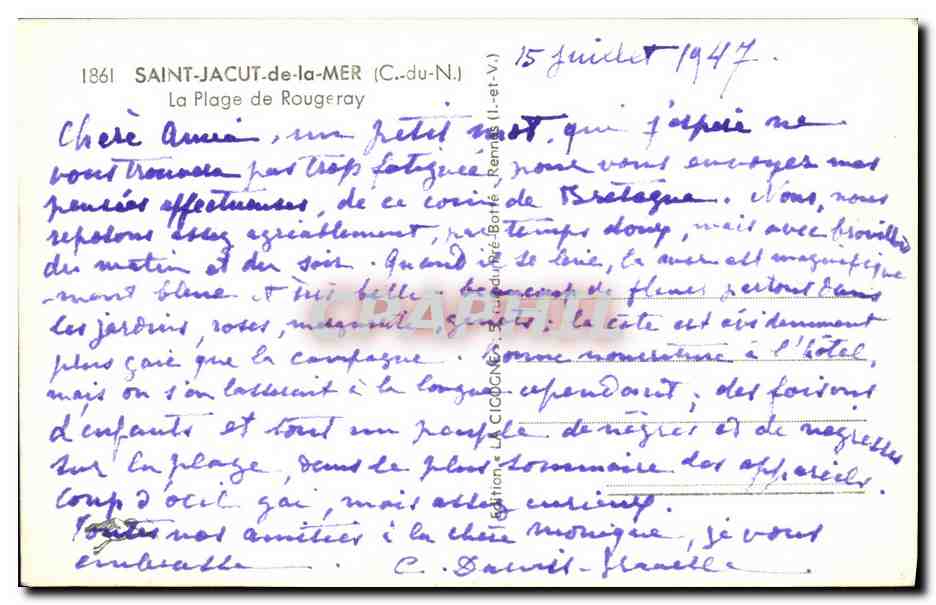 15 Juillet 1947.
1861 SAINT-JACUT-de-la-MER (C.-du-N.)
La Plage de Rougeray
Chère Amie, un petit mot, qui j'espère ne
vous trouvera pas trop fatiguée, pour vous envoyer mes
pensées affectueuses, de ce coin de Bretagne. Nous, nous
reposons assez agréablement, par temps doux, mais avec brouillard
du matin et du soir. Quand il se lève, la mer est magnifique
-ment bleue et très belle. beaucoup de fleurs partout dans
les jardins, roses, genets; la côte est évidemment
plus gaie que la campagne. bonne nourriture à l'hôtel,
mais on s'en lasserait à la longue cependant; des foisons
d'enfants et tout un peuple de nègres et de négresses
sur la plage, dans le plus sommaire des appareils.
Coup d'oeil gai, mais assez curieux.
Toutes nos amitiés à la chère Monique, je vous
embrasse C.
Edition « LA CIGOGNE », 5, rue du Pré-Botté, Rennes (I.-et-V.)
CRAPHU